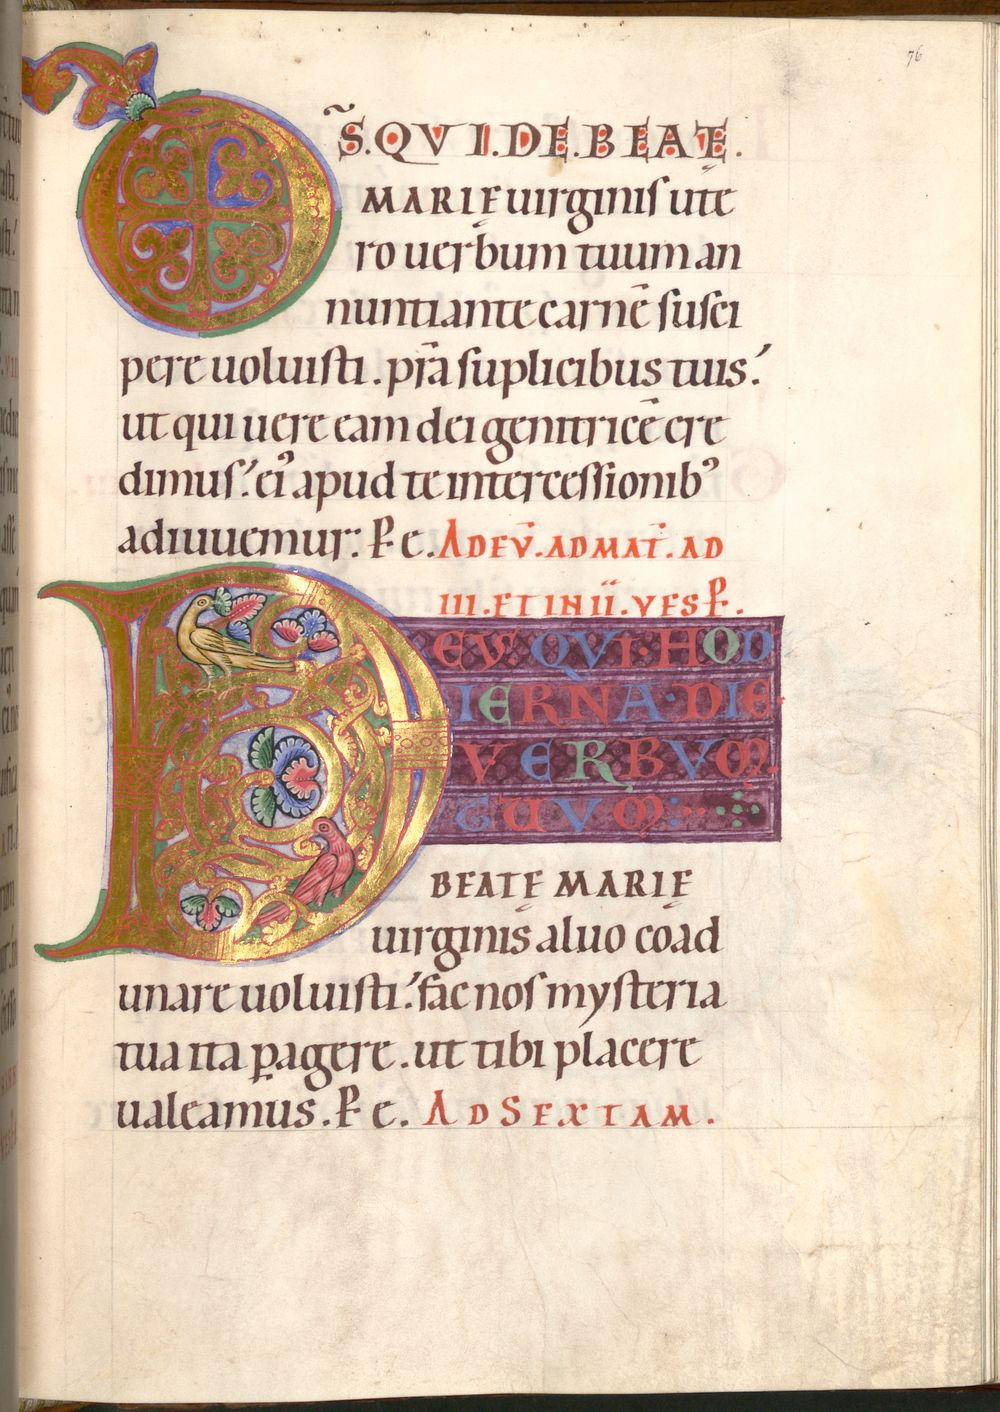 76
D̄S.QVI.DE.BEATĘ.
MARIĘ uirginis ute
ro uerbum tuum an
nuntiante carnē susci
pere uoluisti. pr̄a suplicibus tuis.
ut qui uere eam dei genitricē cre
dimus. ei' apud te intercessionib'
adiuuemur. P̄ e. AD EV̄. AD MAT̄. AD
III. ET IN II. VESP̄.
DEUS. QVI. HOD
IERNA. DIE
VERBVM
TUVM
BEATĘ MARIĘ
uirginis aluo coad
unare uoluisti. fac nos mysteria
tua ita ꝑagere. ut tibi placere
ualeamus. P̄ e. AD SEXTAM.